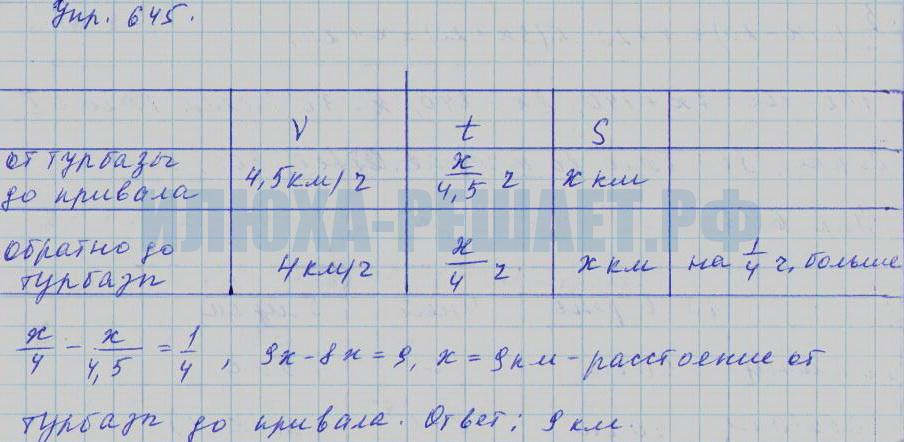 Упр. 645.
V t S
от турбазы до привала 4,5 км/ч x/4,5 ч x км
обратно до турбазы 4 км/ч x/4 ч x км на 1/4 ч, больше
x/4 - x/4,5 = 1/4, 9x - 8x = 9, x = 9 км - расстоение от
турбазы до привала. Ответ: 9 км.
ИЛЮХА-РЕШАЕТ.РФ